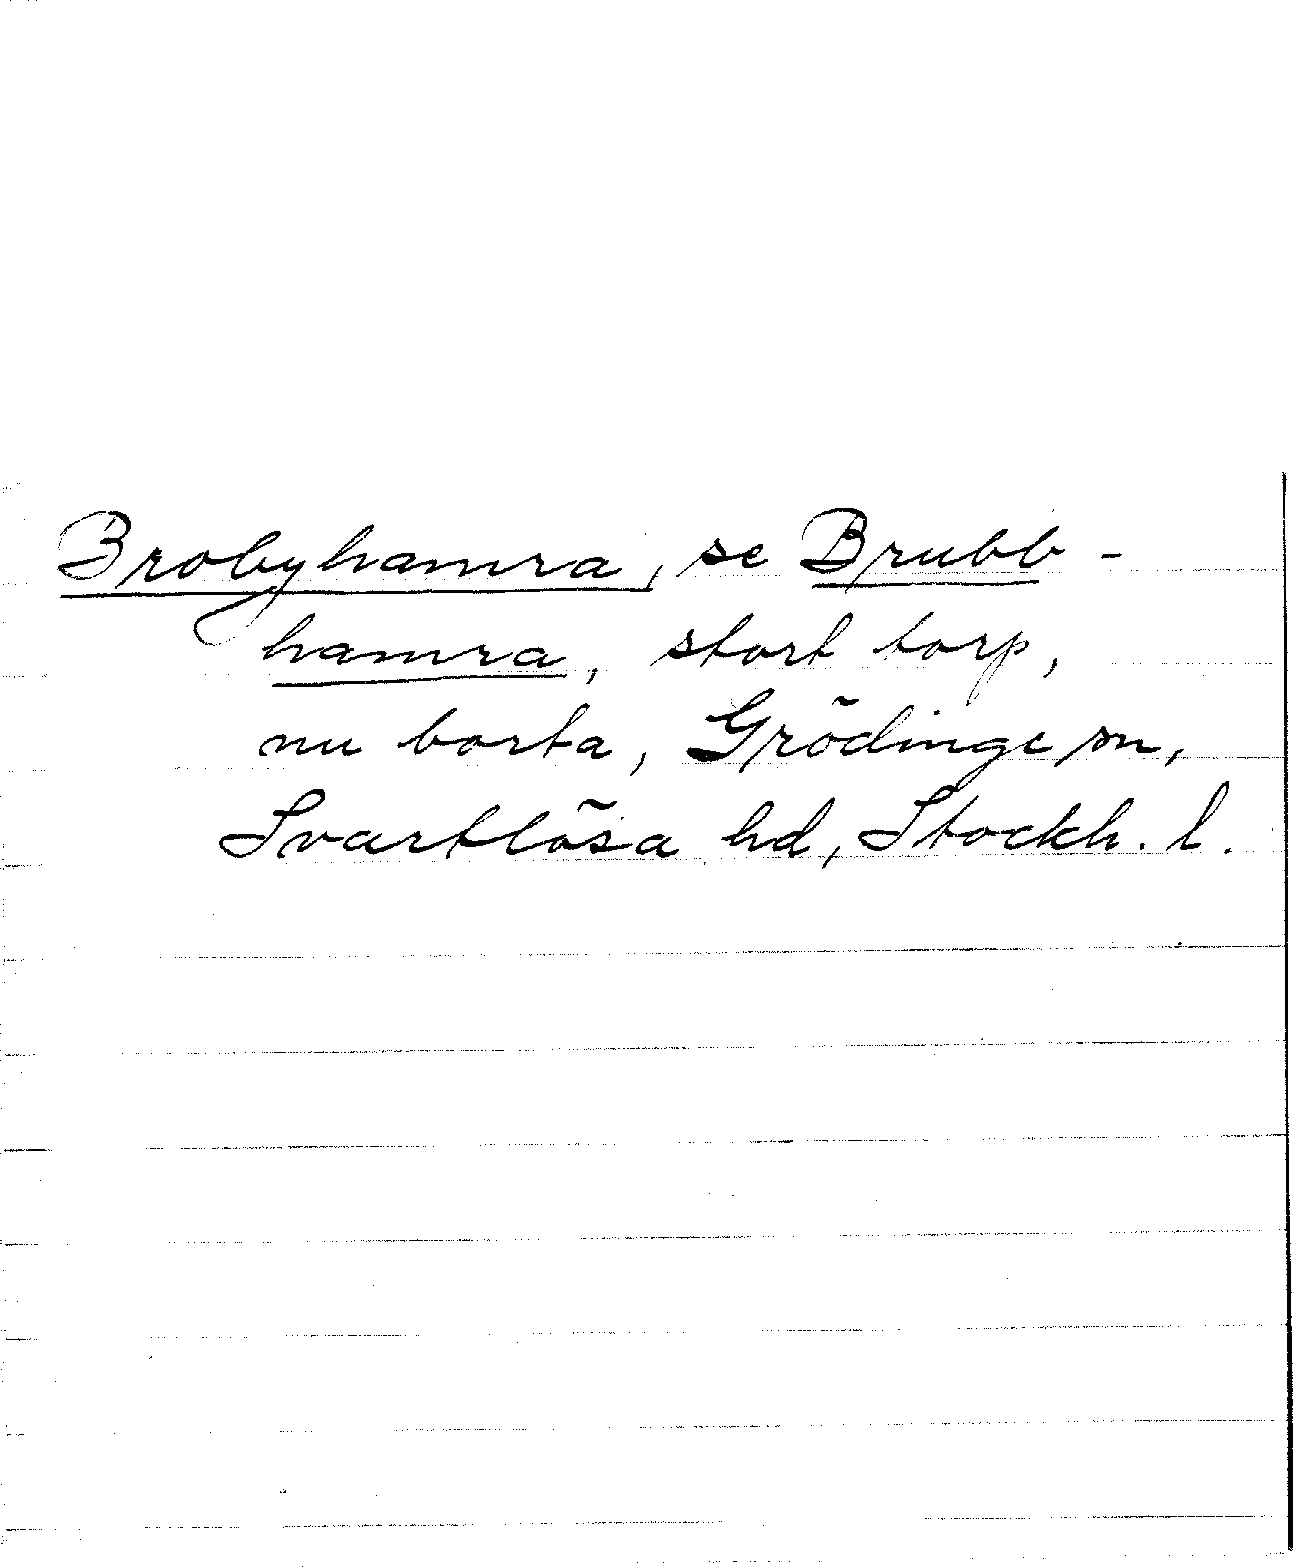 Brobyhamra, se Brubb-
hamra, stort torp,
nu borta, Grödinge sn,
Svartlösa hd, Stockh. l.